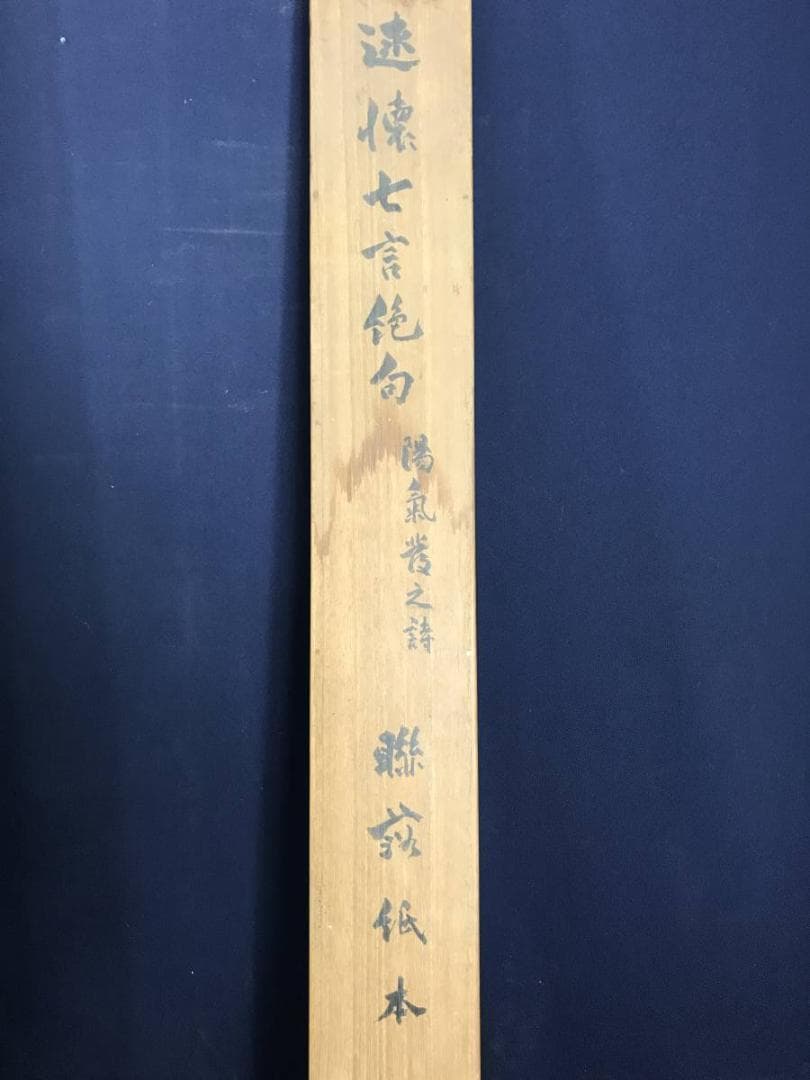 述懐七言絶句
陽氣發之詩
聯落紙本